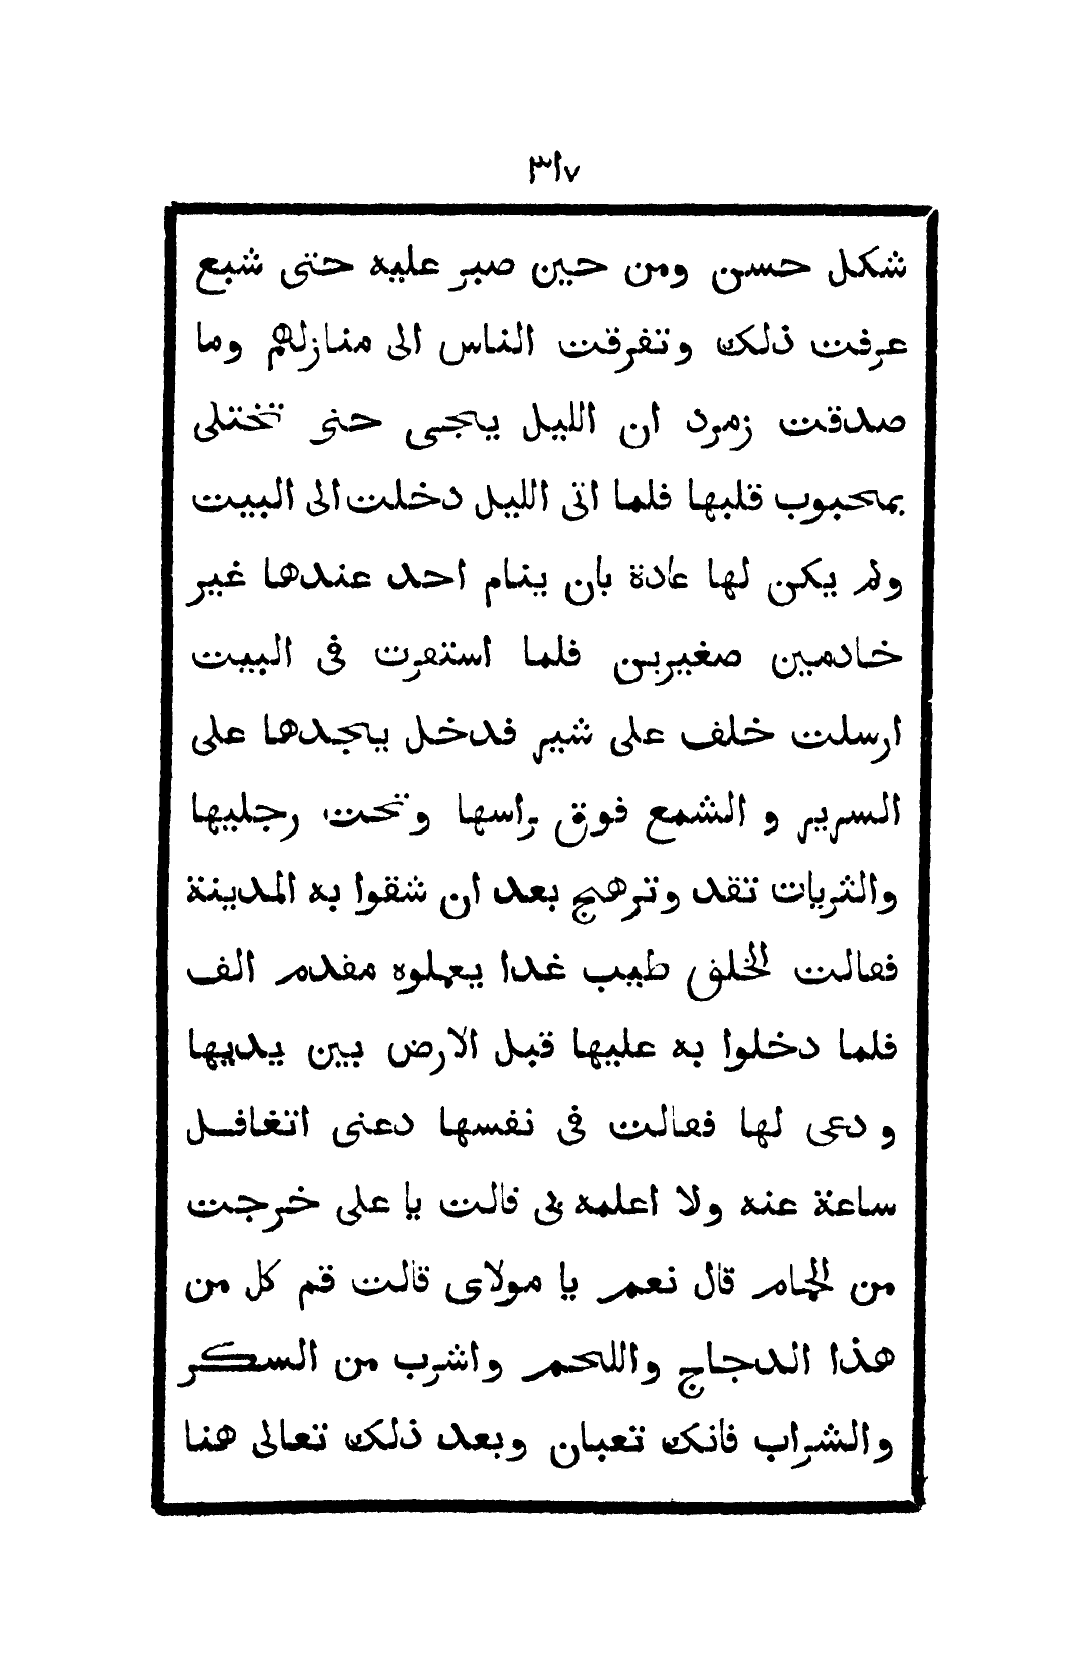 ٣١٧
شكل حسن ومن حين صبر عليه حتى شبع
عرفت ذلك وتفرقت الناس الى منازلهم وما
صدقت زمرد ان الليل يجى حتى تختلى
بمحبوب قلبها فلما اتى الليل دخلت الى البيت
ولم يكن لها عادة بان ينام احد عندها غير
خادمين صغيرين فلما استقرت فى البيت
ارسلت خلف على شير فدخل يجدها على
السرير و الشمع فوق راسها وتحت رجليها
والثريات تقد وترهج بعد ان شقوا به المدينة
فقالت الخلق طيب غدا يعملوه مقدم الف
فلما دخلوا به عليها قبل الارض بين يديها
و دعى لها فقالت فى نفسها دعنى اتغافل
ساعة عنه ولا اعلمه بى قالت يا على خرجت
من الحمام قال نعم يا مولاى قالت قم كل من
هذا الدجاج واللحم واشرب من السكر
والشراب فانك تعبان وبعد ذلك تعالى هنا